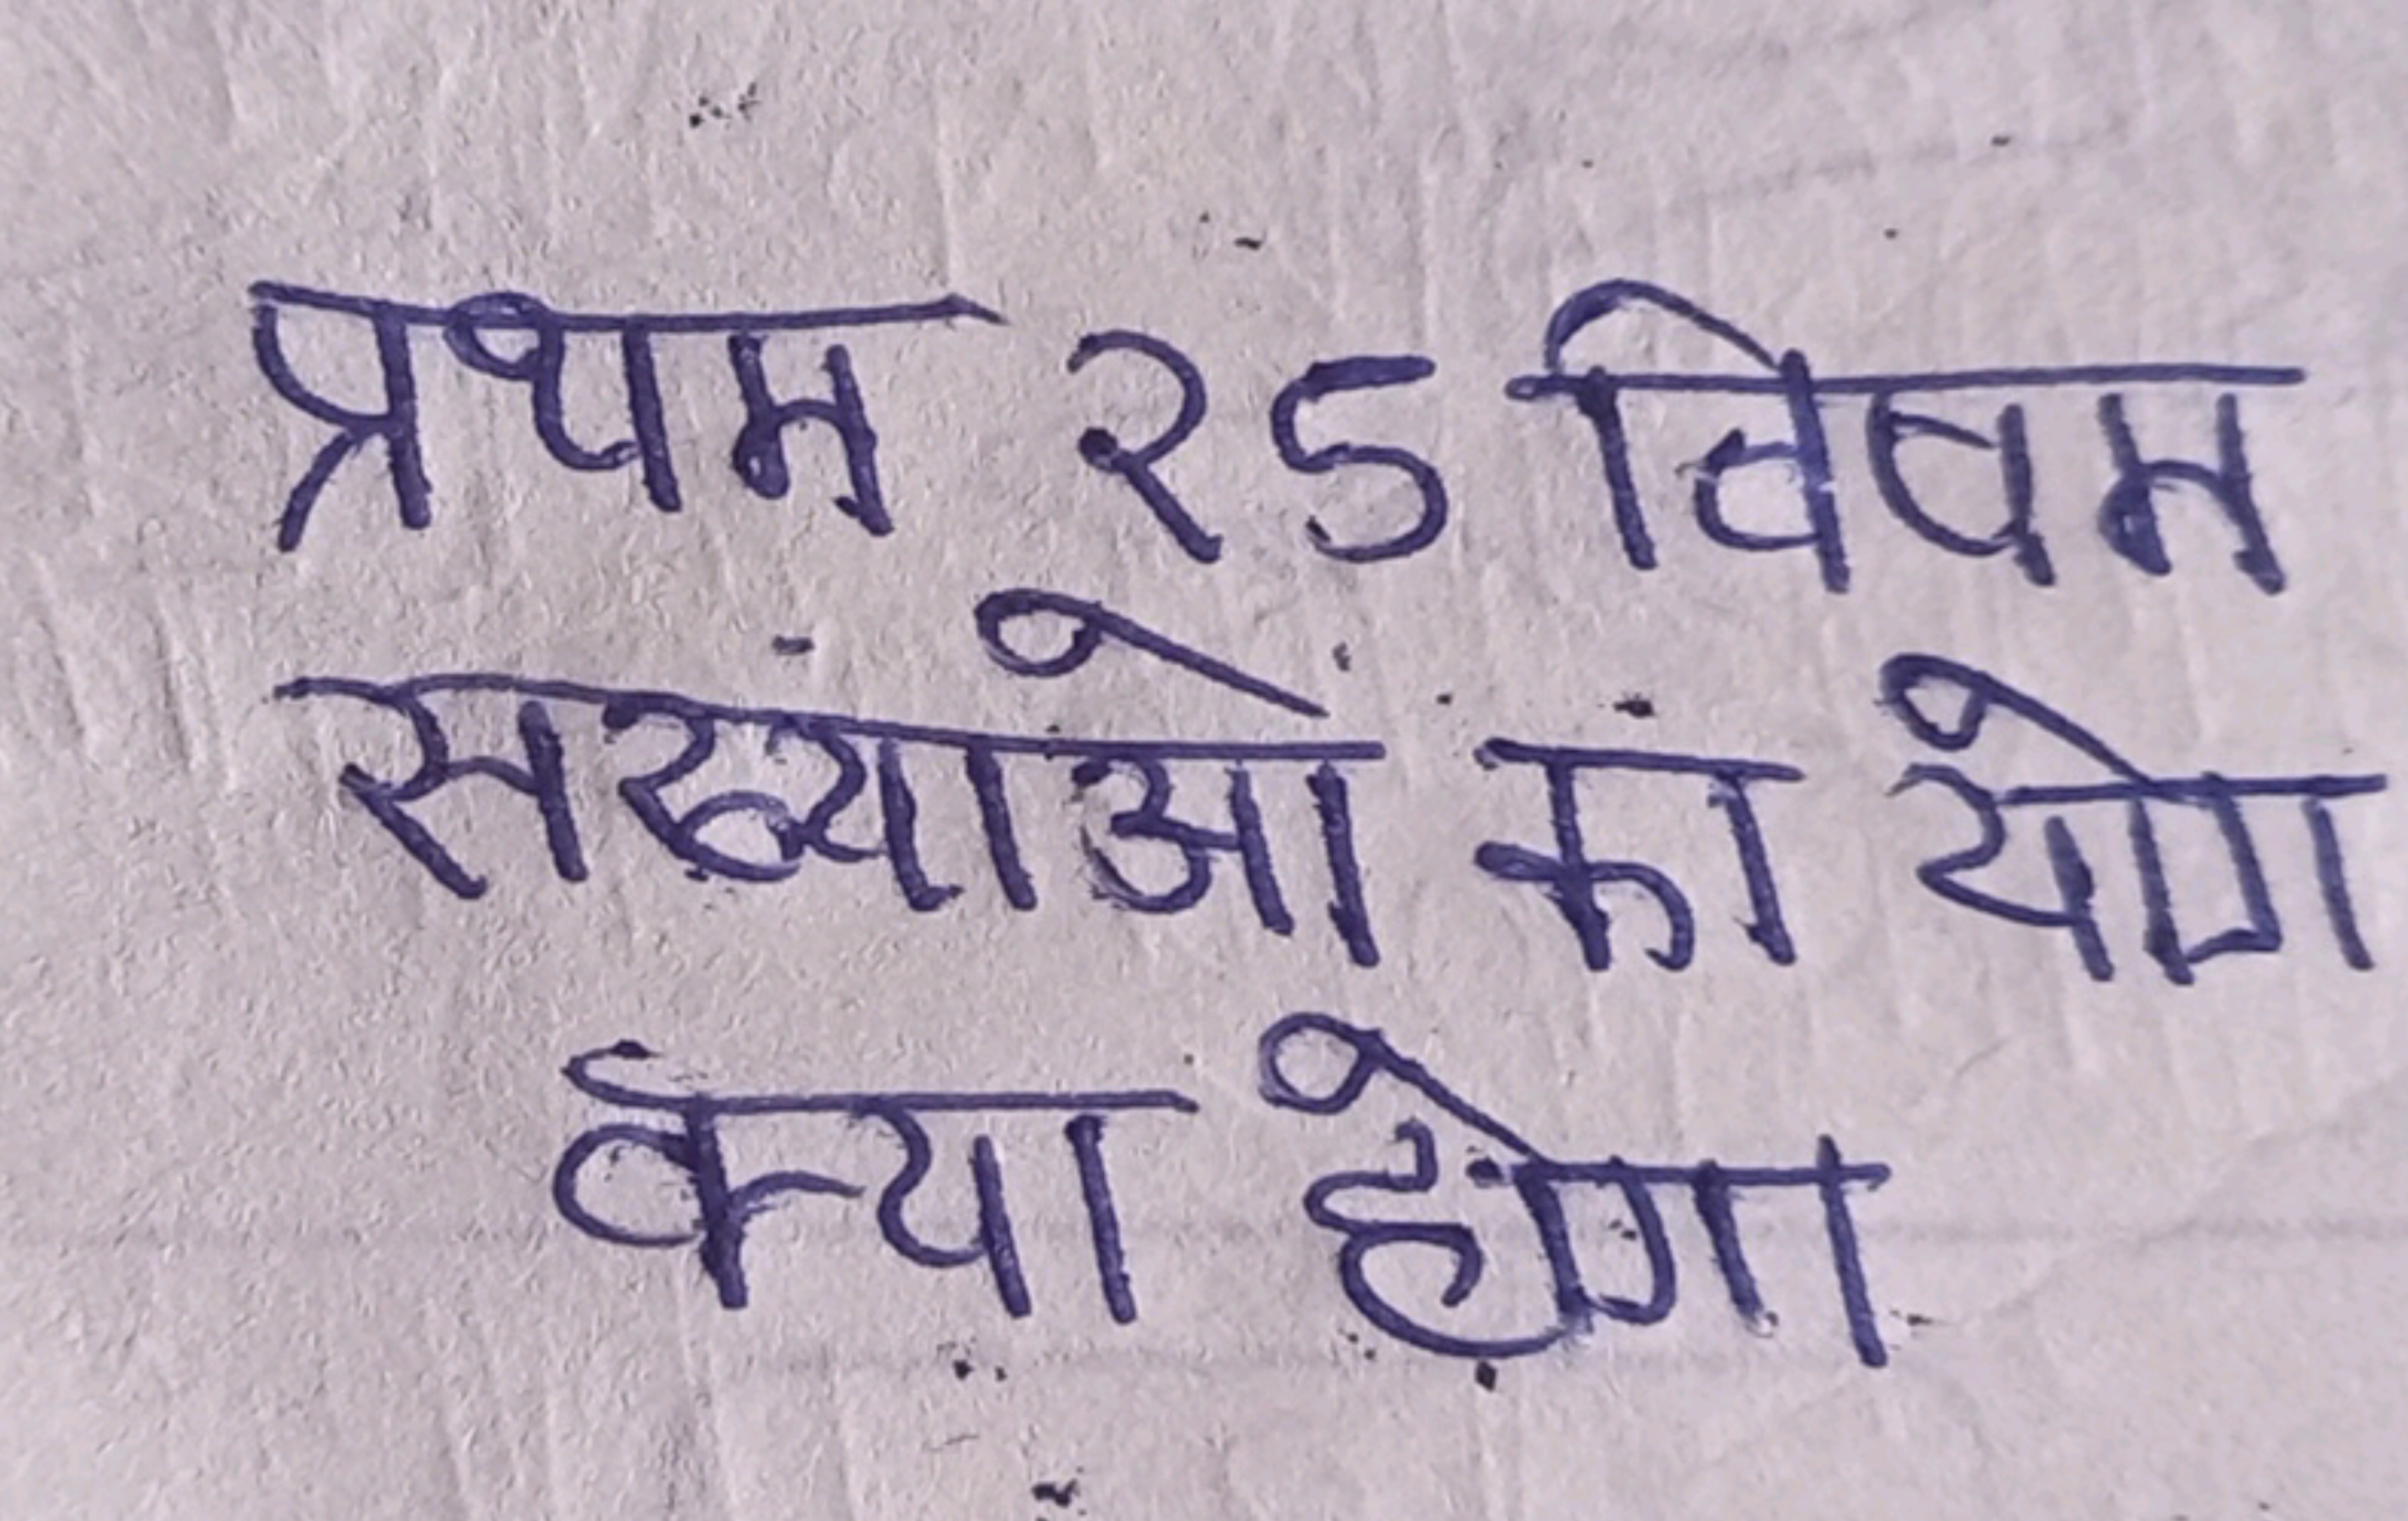 प्रथम २5 विषम
संख्याओ का योग
क्या होगा